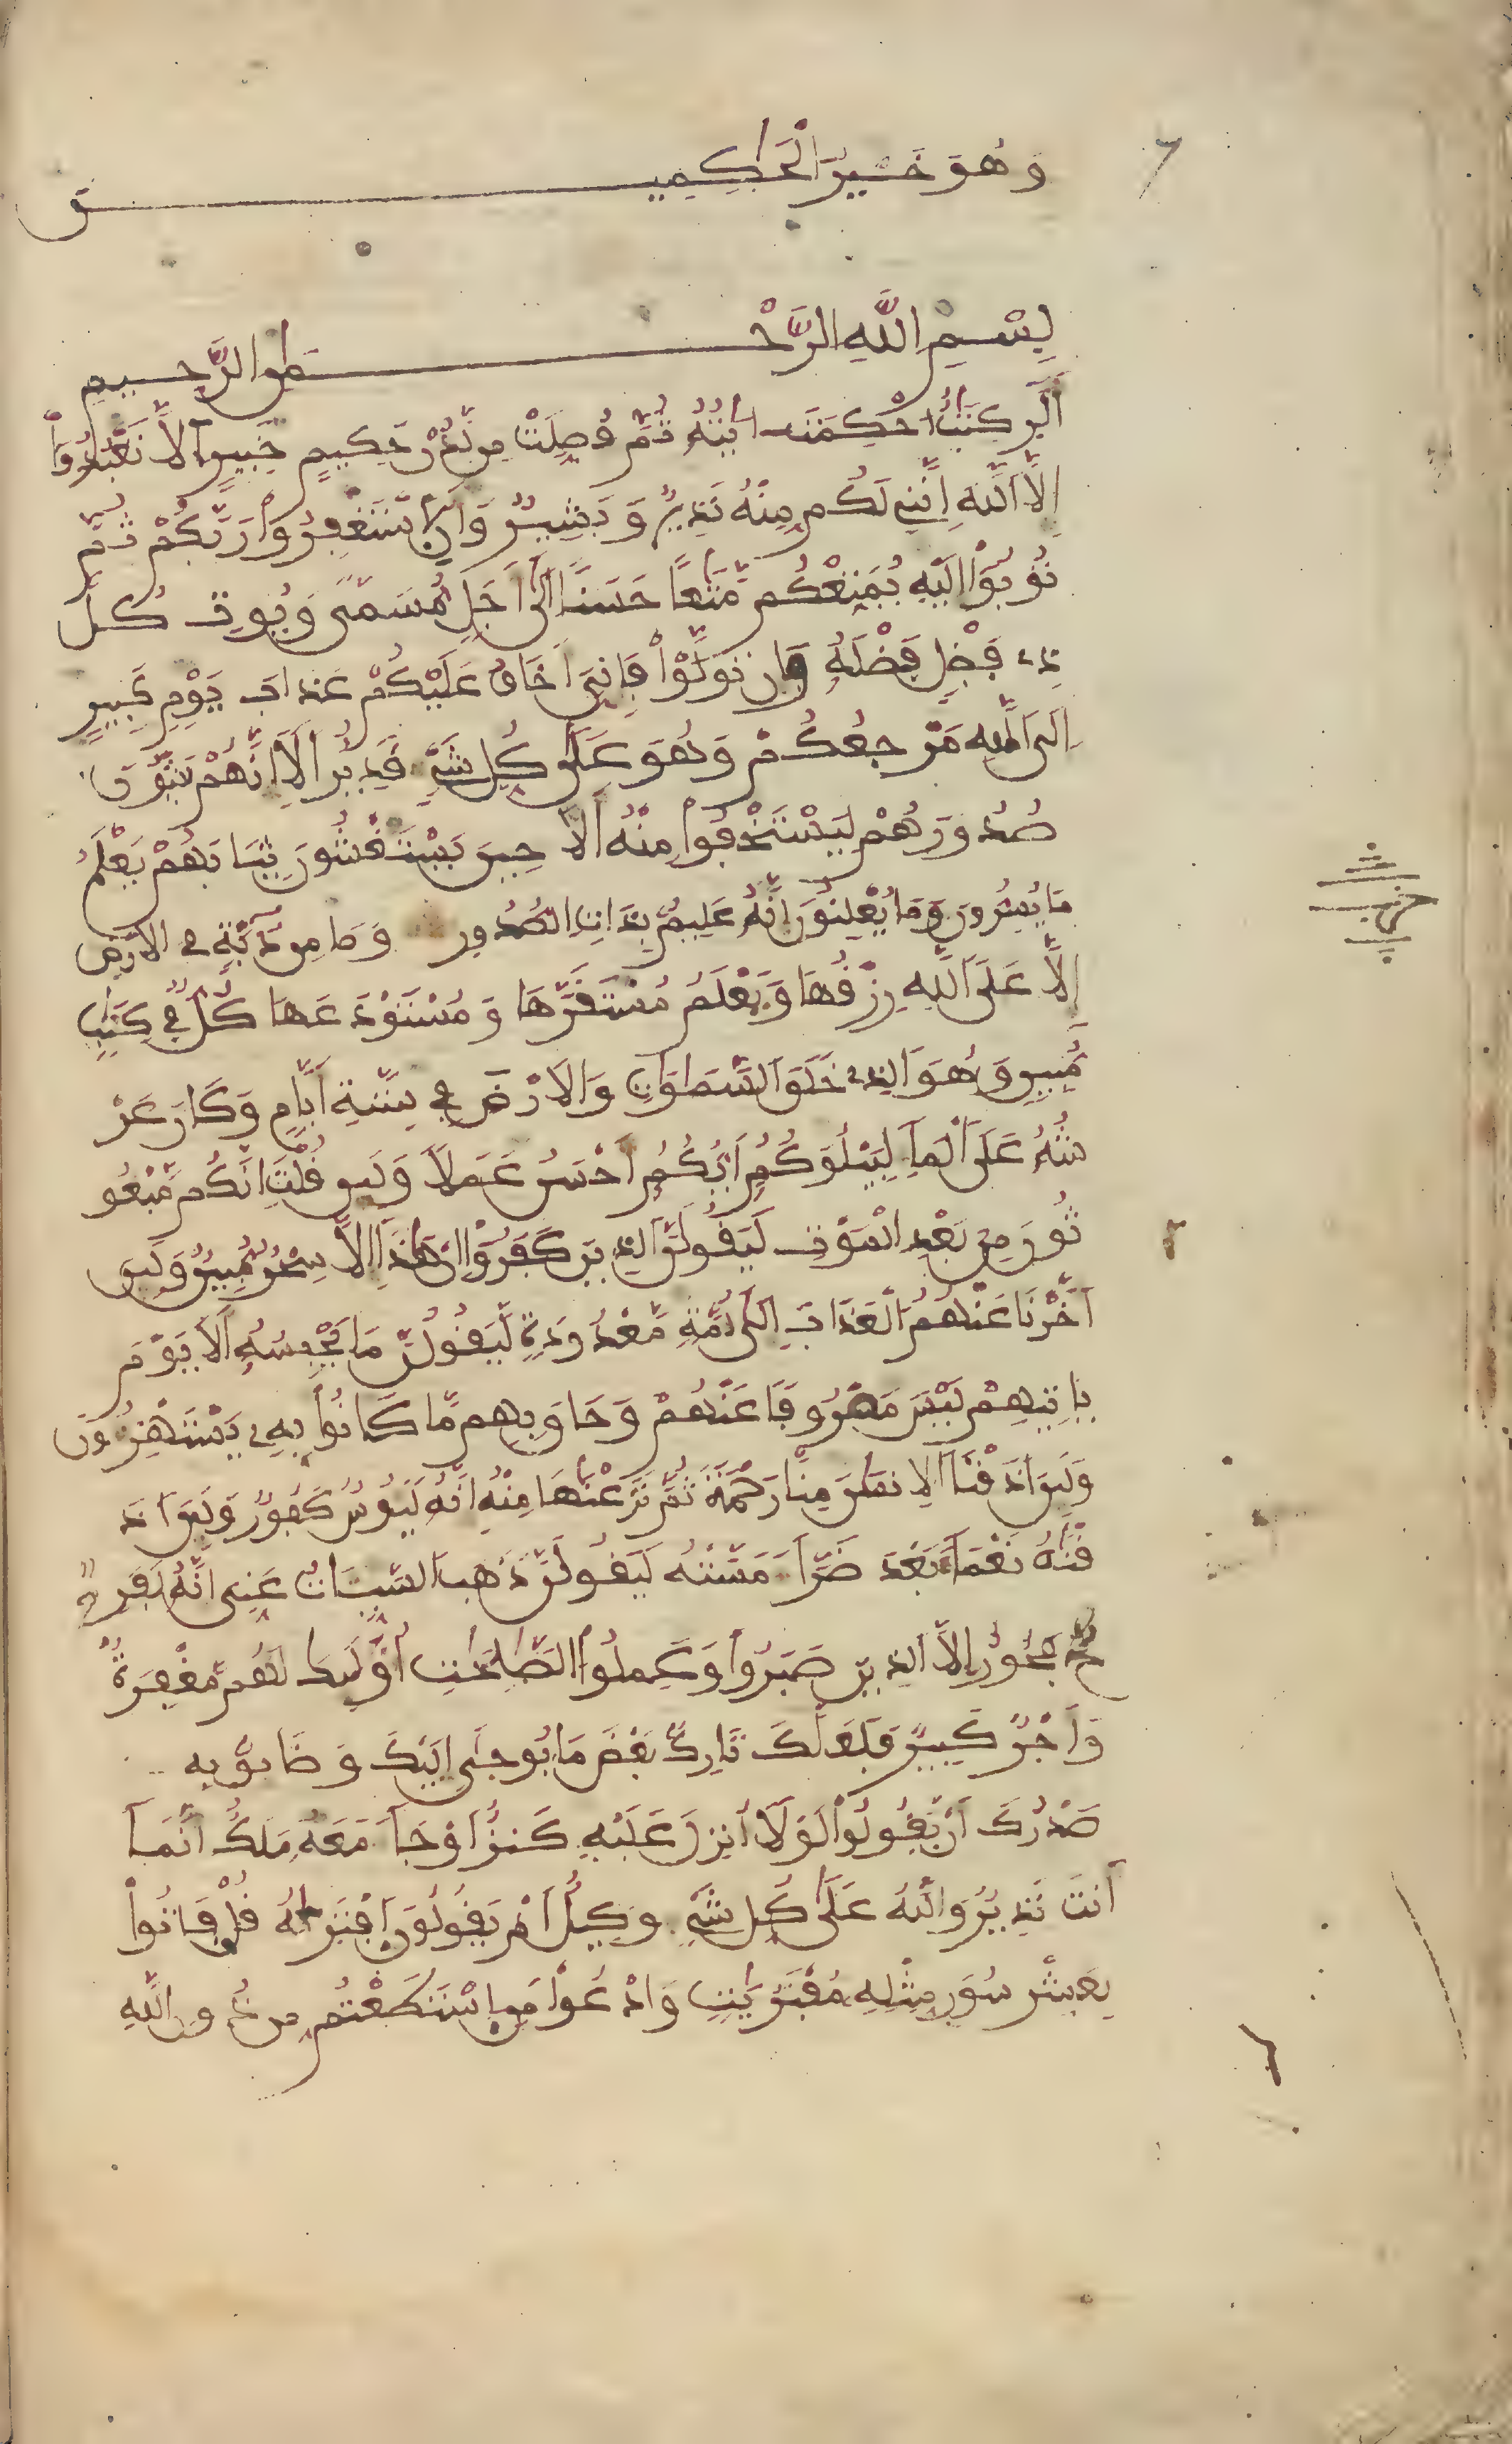 وَهُوَ خَيْرُ الْحَاكِمِينَ
بِسْمِ اللَّهِ الرَّحْمَٰنِ الرَّحِيمِ
الٓر كِتَٰبٌ احْكِمَتَ ايَٰتُهُ ثُمَّ فُصِّلَتْ مِن لَّدُنْ حَكِيمٍ خَبِيرٍ اَلَّا تَعْبُدُوٓاْ
إِلَّا اَللَّهَ إِنَّنِے لَكُم مِّنْهُ نَذِيرٌ وَبَشِيرٌ وَأَنِ اسْتَغْفِرُواْ رَبَّكُمْ ثُمَّ
تُوبُوٓاْ إِلَيْهِ يُمَتِّعْكُم مَّتَٰعًا حَسَنًا اِلَىٰٓ أَجَلٍ مُّسَمّىً وَيُوتِ كُلَّ
ذِے فَضْلٍ فَضْلَهُ وَإِن تَوَلَّوْاْ فَإِنِّيَ أَخَافُ عَلَيْكُمْ عَذَابَ يَوْمٍ كَبِيرٍ
اِلَى اَللَّهِ مَرْجِعُكُمْ وَهُوَ عَلَىٰ كُلِّ شَيْءٍ قَدِيرٌ اَلَآ إِنَّهُمْ يَثْنُونَ
صُدُورَهُمْ لِيَسْتَخْفُواْ مِنْهُ أَلَا حِينَ يَسْتَغْشُونَ ثِيَابَهُمْ يَعْلَمُ
مَا يُسِرُّونَ وَمَا يُعْلِنُونَ إِنَّهُ عَلِيمٌ بِذَاتِ الصُّدُورِ وَمَا مِن دَآبَّةٍ فِے الْأَرْضِ
إِلَّا عَلَى اَللَّهِ رِزْقُهَا وَيَعْلَمُ مُسْتَقَرَّهَا وَمُسْتَوْدَعَهَا كُلٌّ فِے كِتَٰبٍ
مُّبِينٍ وَهُوَ اَلذِے خَلَقَ السَّمَٰوَٰتِ وَالَارْضَ فِے سِتَّةِ أَيَّامٍ وَكَانَ عَرْ
شُهُ عَلَى اَلْمَآءِ لِيَبْلُوَكُمُ أَيُّكُمُ أَحْسَنُ عَمَلًا وَلَئِن قُلْتَ إِنَّكُم مَّبْعُو
ثُونَ مِنۢ بَعْدِ الْمَوْتِ لَيَقُولَنَّ اَلذِينَ كَفَرُوٓاْ إِنْ هَٰذَآ إِلَّا سِحْرٌ مُّبِينٌ وَلَئِنَ
اَخَّرْنَا عَنْهُمُ الْعَذَابَ إِلَىٰٓ أُمَّةٍ مَّعْدُودَةٍ لَّيَقُولُنَّ مَا يَحْبِسُهُ أَلَا يَوْمَ
يَاتِيهِمْ لَيْسَ مَصْرُوفًا عَنْهُمْ وَحَاقَ بِهِم مَّا كَانُواْ بِهِۦ يَسْتَهْزِءُونَ
وَلَئِنَ اَذَقْنَا اَلِانسَٰنَ مِنَّا رَحْمَةً ثُمَّ نَزَعْنَٰهَا مِنْهُ إِنَّهُ لَيَئُوسٌ كَفُورٌ وَلَئِنَ اَذَ
قْنَٰهُ نَعْمَآءَ بَعْدَ ضَرَّآءَ مَسَّتْهُ لَيَقُولَنَّ ذَهَبَ السَّيِّـَٔاتُ عَنِّيَ إِنَّهُ لَفَرِ
حٌ فَخُورٌ اِلَّا اَلذِينَ صَبَرُواْ وَعَمِلُواْ الصَّٰلِحَٰتِ أُوْلَٰئِكَ لَهُم مَّغْفِرَةٌ
وَأَجْرٌ كَبِيرٌ فَلَعَلَّكَ تَارِكٌ بَعْضَ مَا يُوحَىٰٓ إِلَيْكَ وَضَآئِقٌ بِهِ
صَدْرُكَ أَنْ يَّقُولُواْ لَوْلَآ أُنزِلَ عَلَيْهِ كَنزٌ اَوْ جَآءَ مَعَهُ مَلَكٌ اِنَّمَآ
أَنتَ نَذِيرٌ وَاللَّهُ عَلَىٰ كُلِّ شَيْءٍ وَكِيلٌ اَمْ يَقُولُونَ اَفْتَرَىٰهُ قُلْ فَاتُواْ
بِعَشْرِ سُوَرٍ مِّثْلِهِ مُفْتَرَيَٰتٍ وَادْعُواْ مَنِ اِسْتَطَعْتُم مِّن دُونِ اللَّهِ
حزب